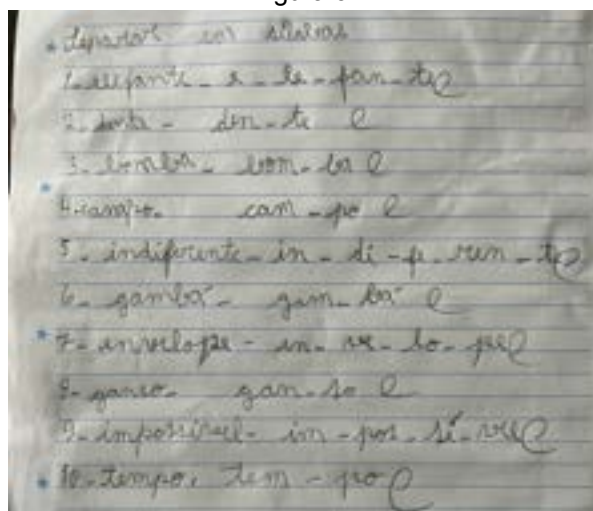 separar em sílabas
1-elefante - e - le - fan - te C
2-dente - den - te C
3-bomba - bom - ba C
4-campo - cam - po C
5-indiferente - in - di - fe - ren - te C
6-gambá - gam - bá C
7-envelope - en - ve - lo - pe C
8-ganso - gan - so C
9-impossível - im - pos - sí - vel C
10-tempo, tem - po C